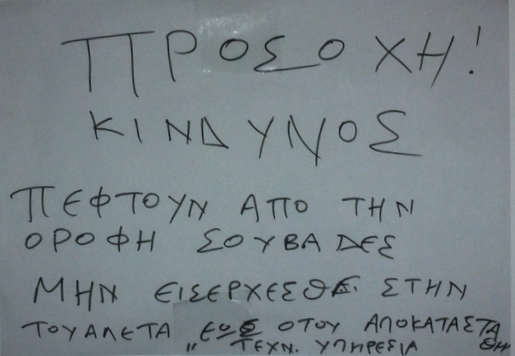 ΠΡΟΣΟΧΗ!
ΚΙΝΔΥΝΟΣ
ΠΕΦΤΟΥΝ ΑΠΟ ΤΗΝ
ΟΡΟΦΗ ΣΟΥΒΑΔΕΣ
ΜΗΝ ΕΙΣΕΡΧΕΣΘΕ ΣΤΗΝ
ΤΟΥΑΛΕΤΑ ΕΩΣ ΟΤΟΥ ΑΠΟΚΑΤΑΣΤΑΘΗ
" ΤΕΧΝ. ΥΠΗΡΕΣΙΑ